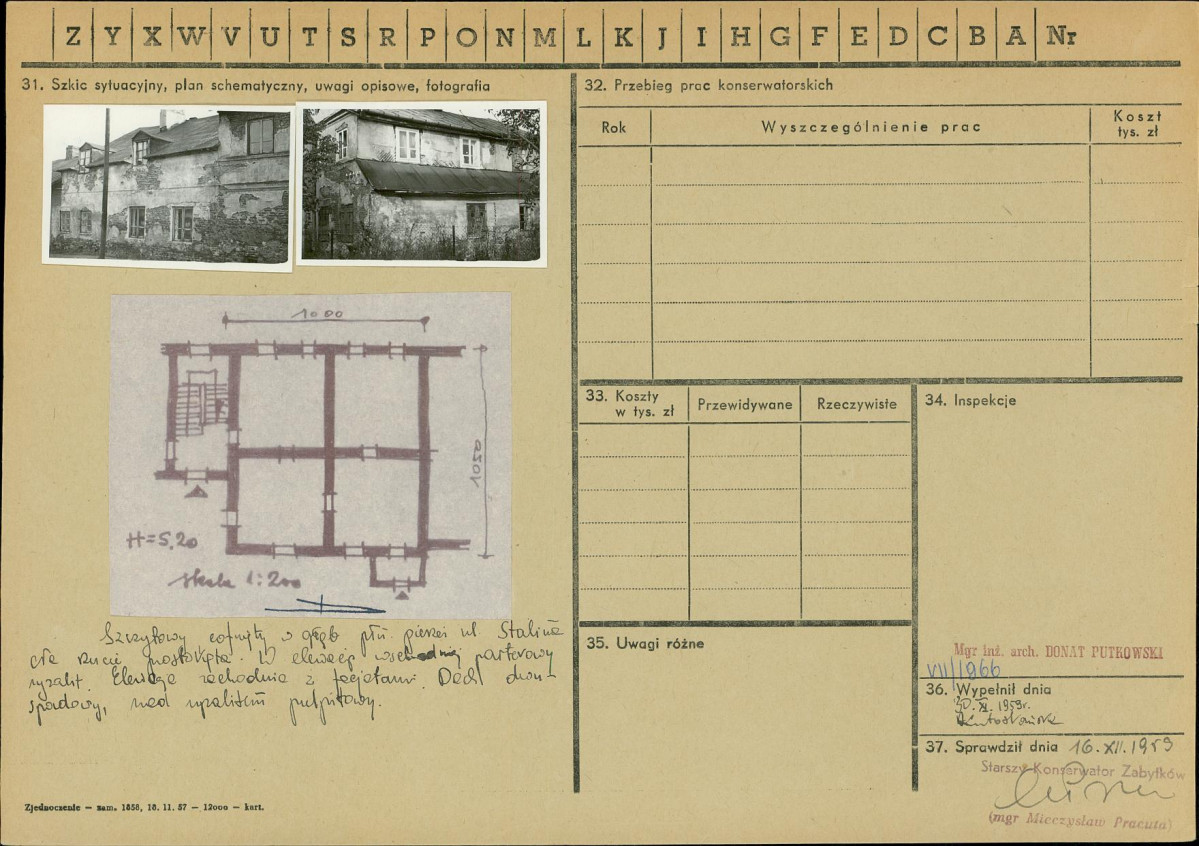 Z Y X W V U T S R P O N M L K J I H G F E D C B A Nr
31. Szkic sytuacyjny, plan schematyczny, uwagi opisowe, fotografia
1000
1050
H=5,20
skala 1:200
Szczytowy cofnięty w głąb płn. pierzei ul. Stalina
na rzucie prostokąta. W elewacji wschodniej parterowy
ryzalit. Elewacja zachodnia z facjatami. Dach dwu-
spadowy, nad ryzalitem pulpitowy.
Zjednoczenie — zam. 1858, 18. 11. 57 — 12000 — kart.
32. Przebieg prac konserwatorskich
Rok
Wyszczególnienie prac
Koszt
tys. zł
33. Koszty
w tys. zł
Przewidywane
Rzeczywiste
34. Inspekcje
35. Uwagi różne
Mgr inż. arch. DONAT PUTKOWSKI
VII/1966
36. Wypełnił dnia
30. XI. 1959r.
37. Sprawdził dnia 16. XII. 1959
Starszy Konserwator Zabytków
(mgr Mieczysław Pracuta)